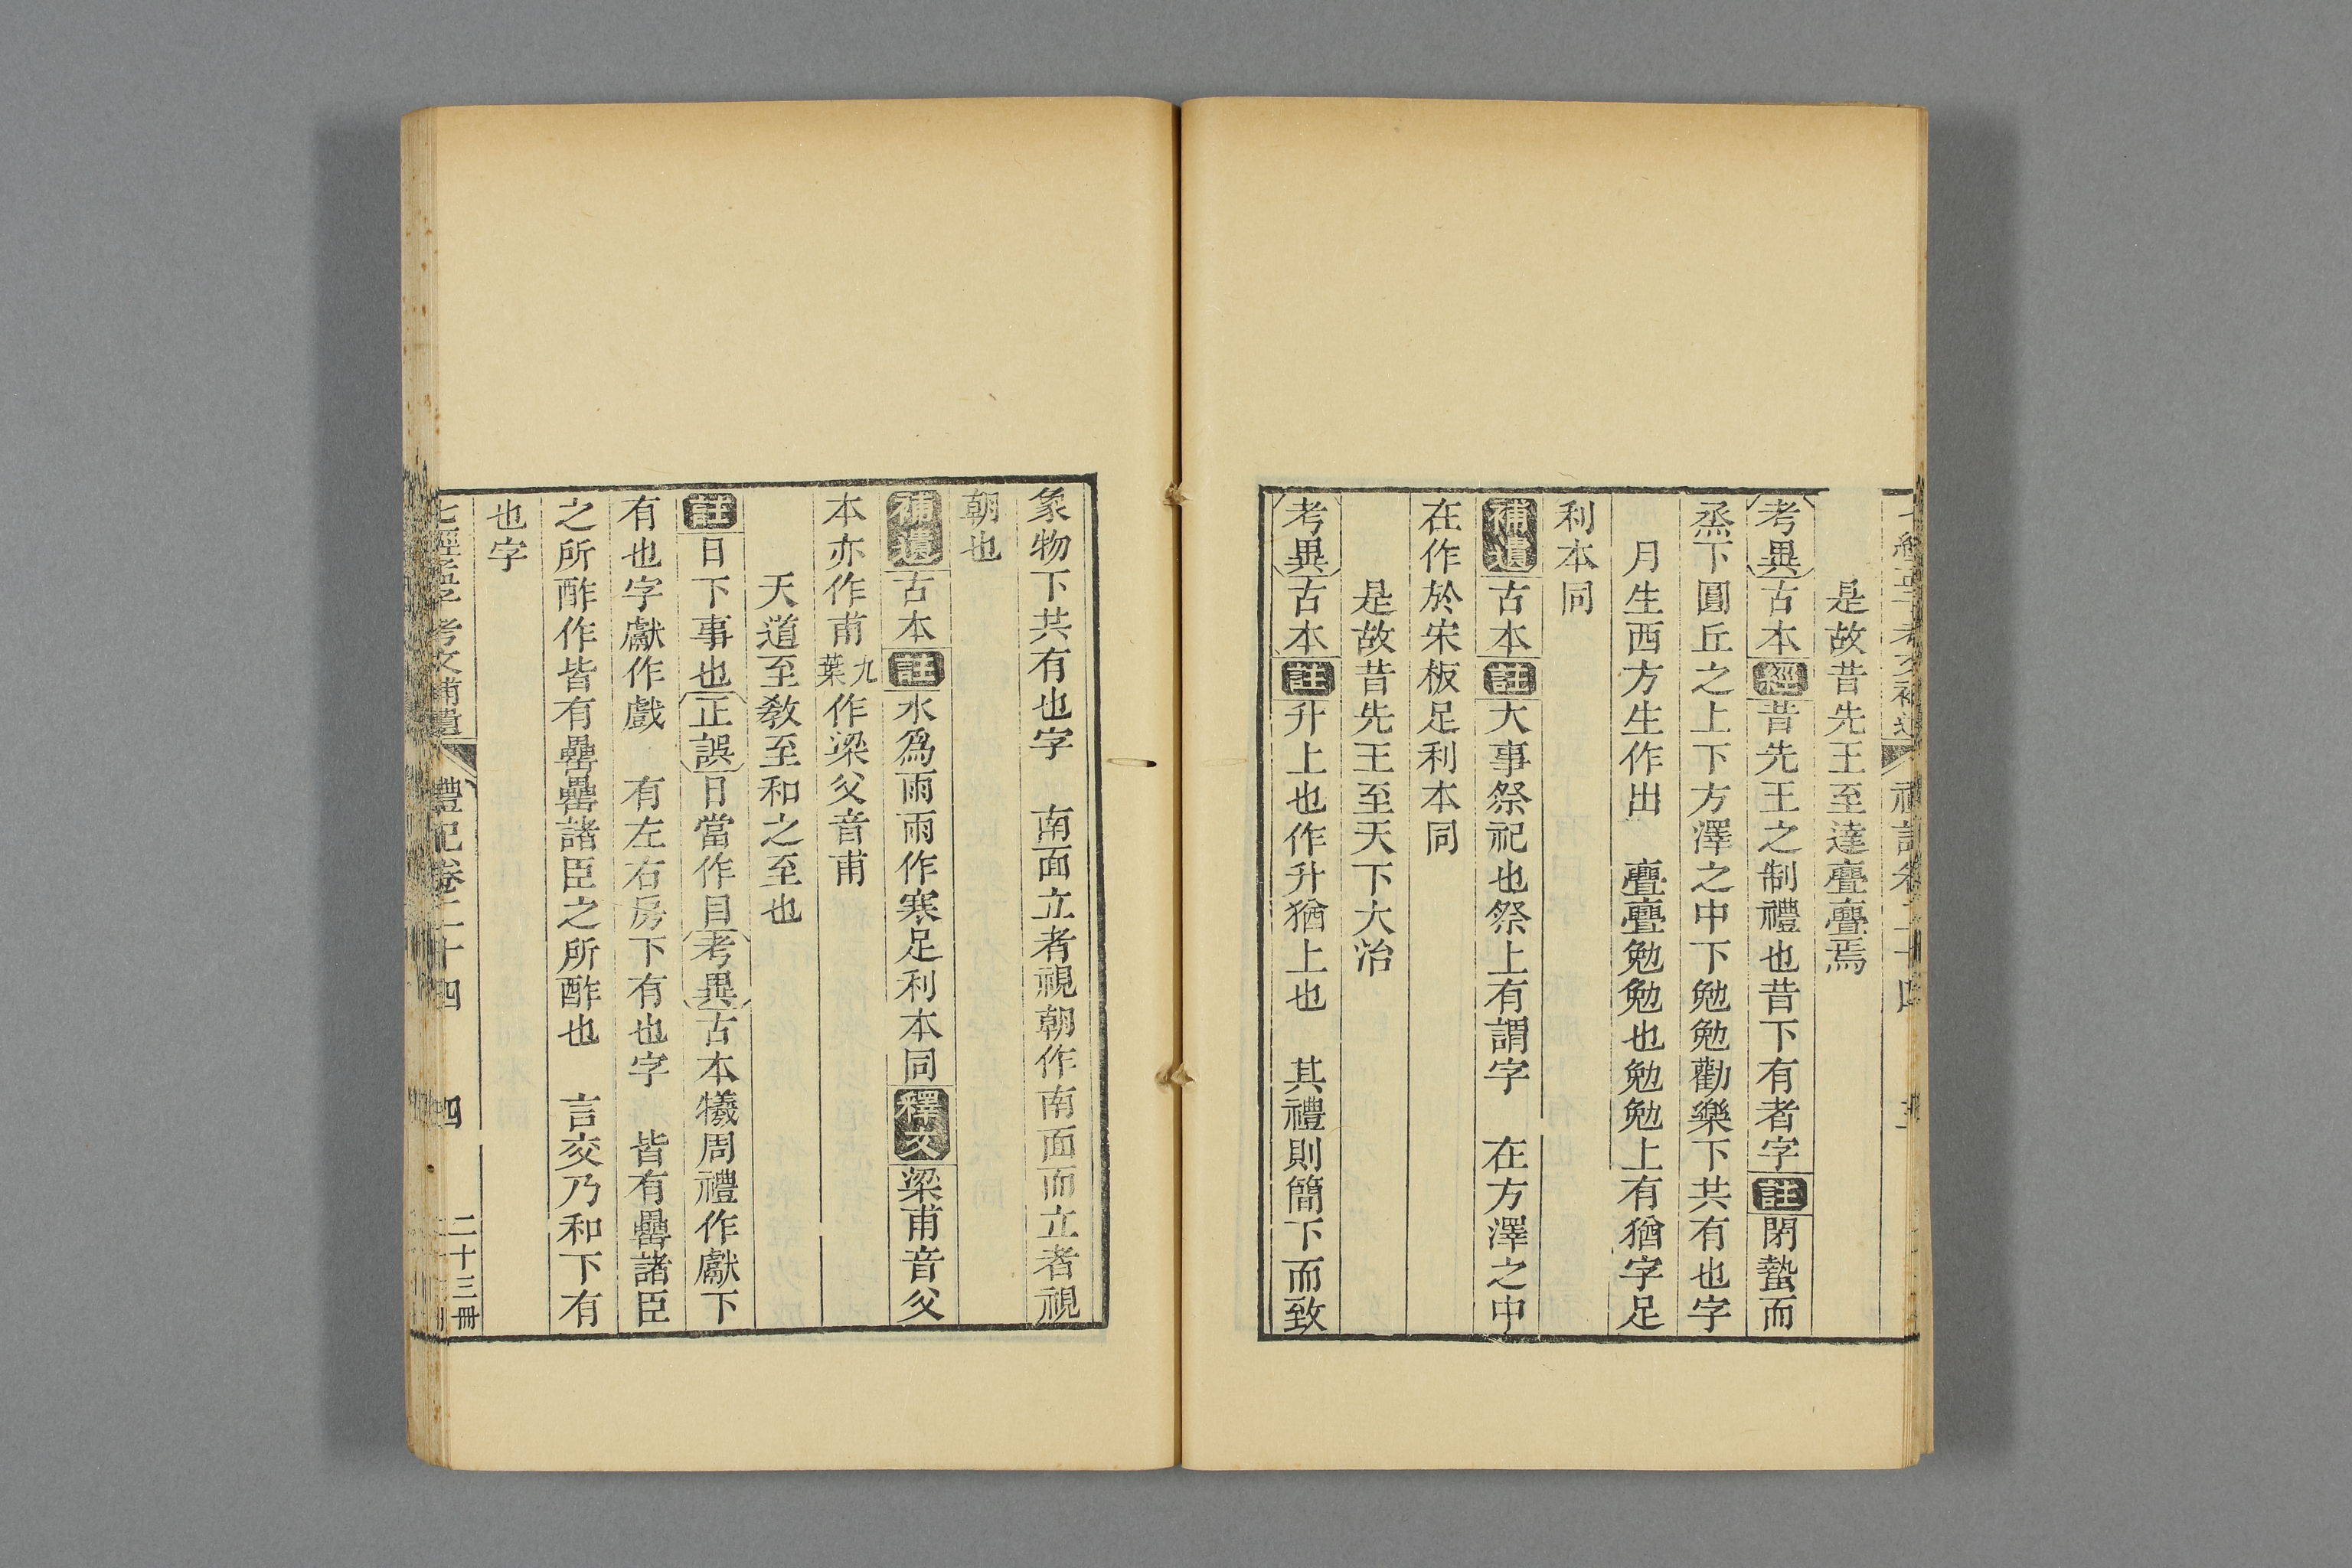 是故昔先王至達亹亹焉
考異古本經昔先王之制禮也昔下有者字註閉蟄而
烝下圓丘之上下方澤之中下勉勉勸樂下共有也字
月生西方生作出　亹亹勉勉也勉勉上有猶字足
利本同
補遺古本註大事祭祀也祭上有謂字　在方澤之中
在作於宋板足利本同
是故昔先王至天下大治
考異古本註升上也作升猶上也　其禮則簡下而致
象物下共有也字　南面立者視朝作南面而立者視
朝也
補遺古本註水爲雨雨作寒足利本同釋文梁甫音父
本亦作甫九葉作梁父音甫
天道至敎至和之至也
註日下事也正誤日當作目考異古本犧周禮作獻下
有也字獻作戲　有左右房下有也字　皆有罍諸臣
之所酢作皆有罍罍諸臣之所酢也　言交乃和下有
也字
七經孟子考文補遺　禮記卷二十四　四　二十三冊